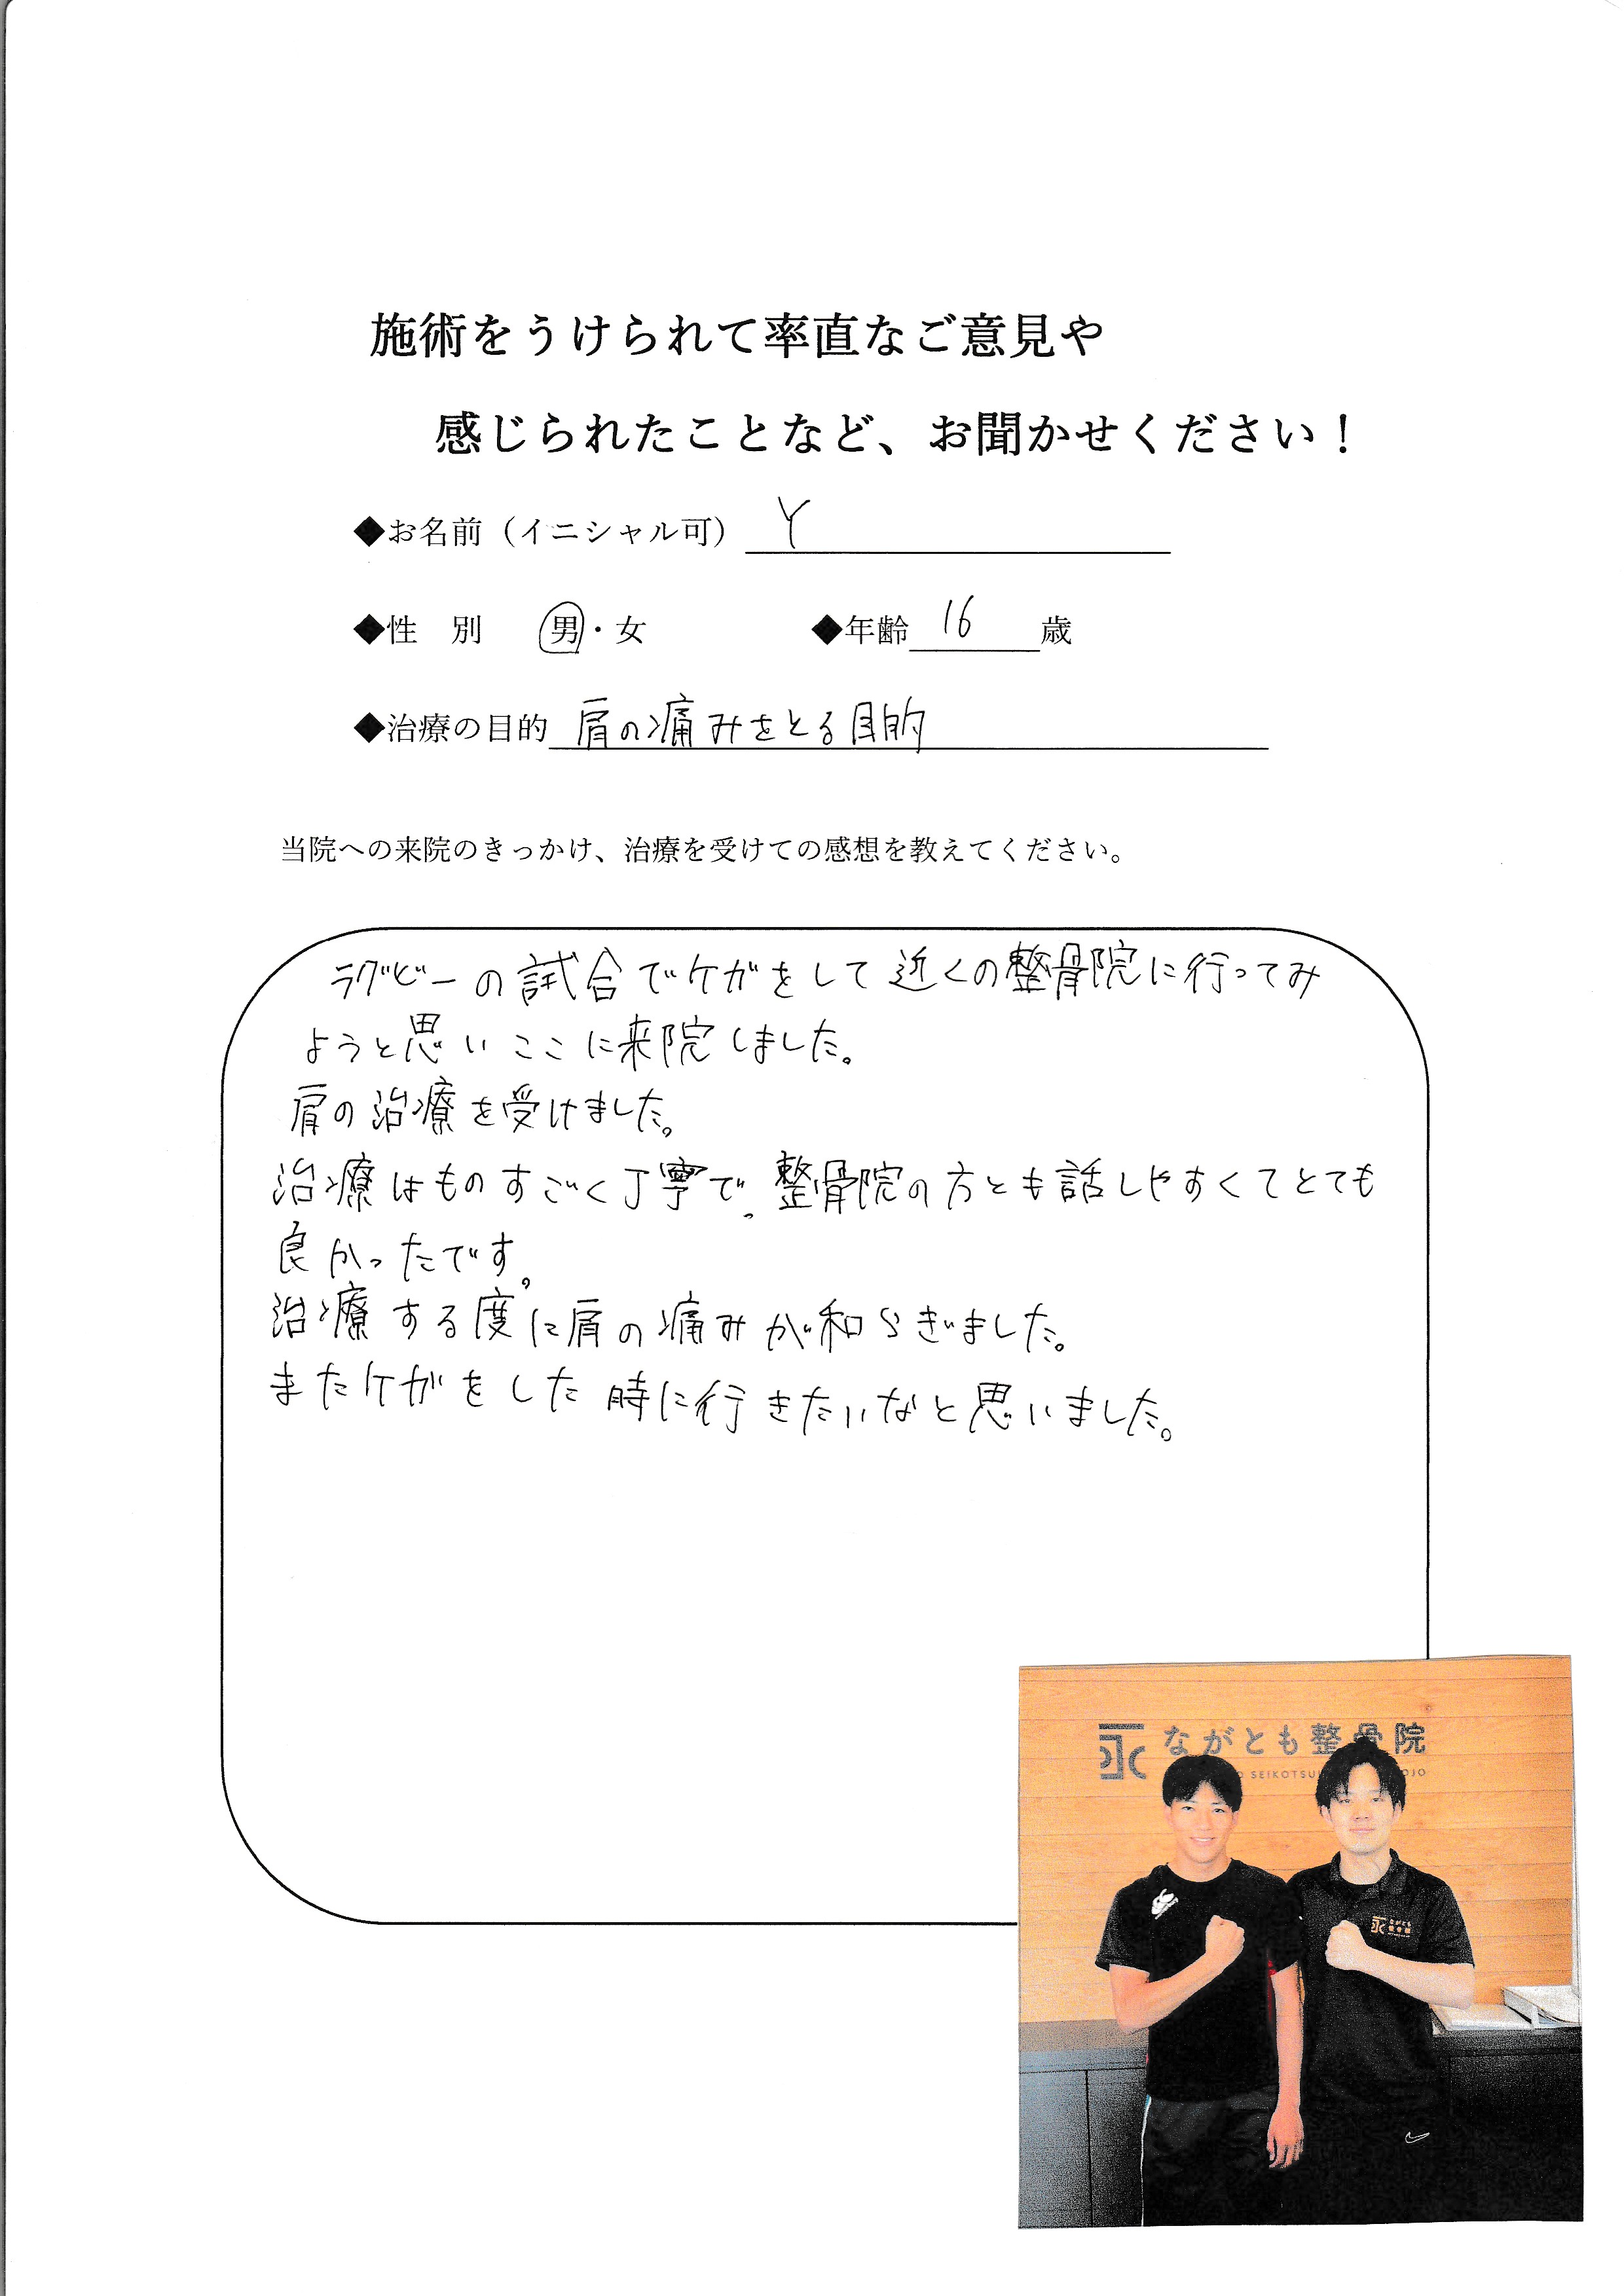 施術をうけられて率直なご意見や
感じられたことなど、お聞かせください！
◆お名前（イニシャル可） Y
◆性　別　男・女　◆年齢 16 歳
◆治療の目的 肩の痛みをとる目的
当院への来院のきっかけ、治療を受けての感想を教えてください。
ラグビーの試合でケガをして近くの整骨院に行ってみ
ようと思いここに来院しました。
肩の治療を受けました。
治療はものすごく丁寧で、整骨院の方とも話しやすくてとても
良かったです。
治療する度に肩の痛みが和らぎました。
またケガをした時に行きたいなと思いました。
永 ながとも整骨院
SEIKOTSU